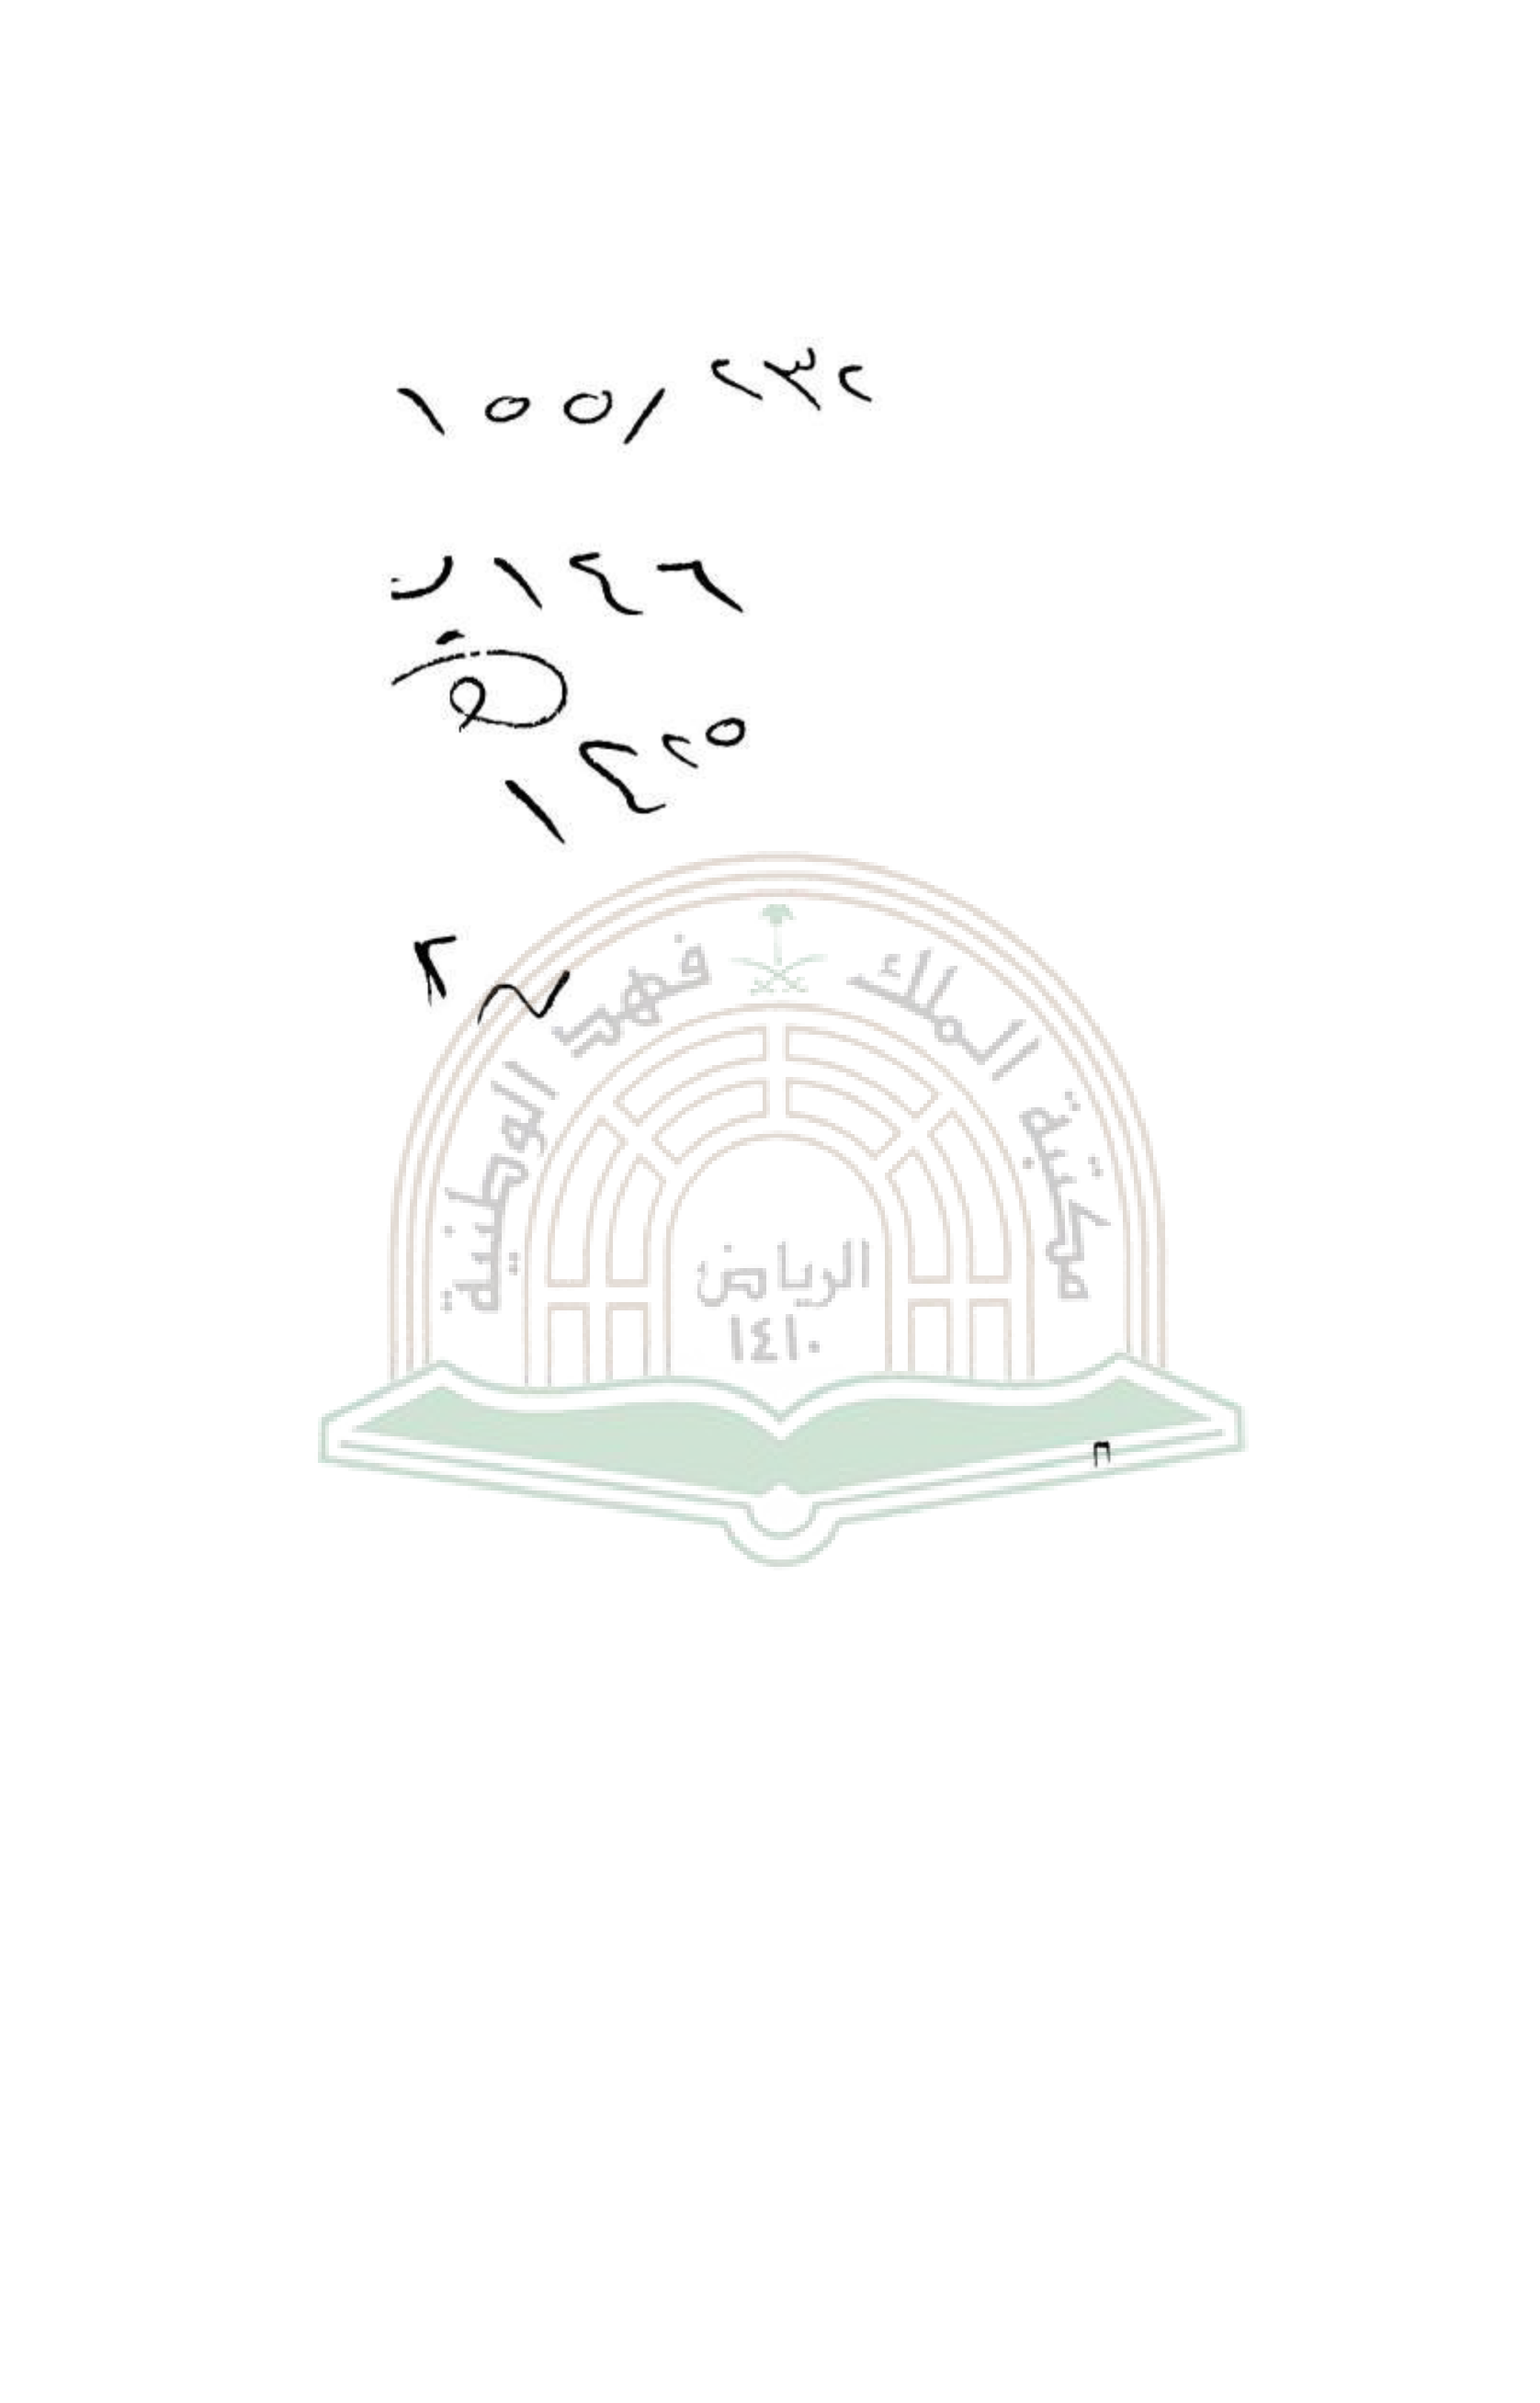 ١٥٥/٢٣٢
١٤٦
١٤٢٥
٢
مكتبة الملك فهد الوطنية
الرياض
١٤١٠